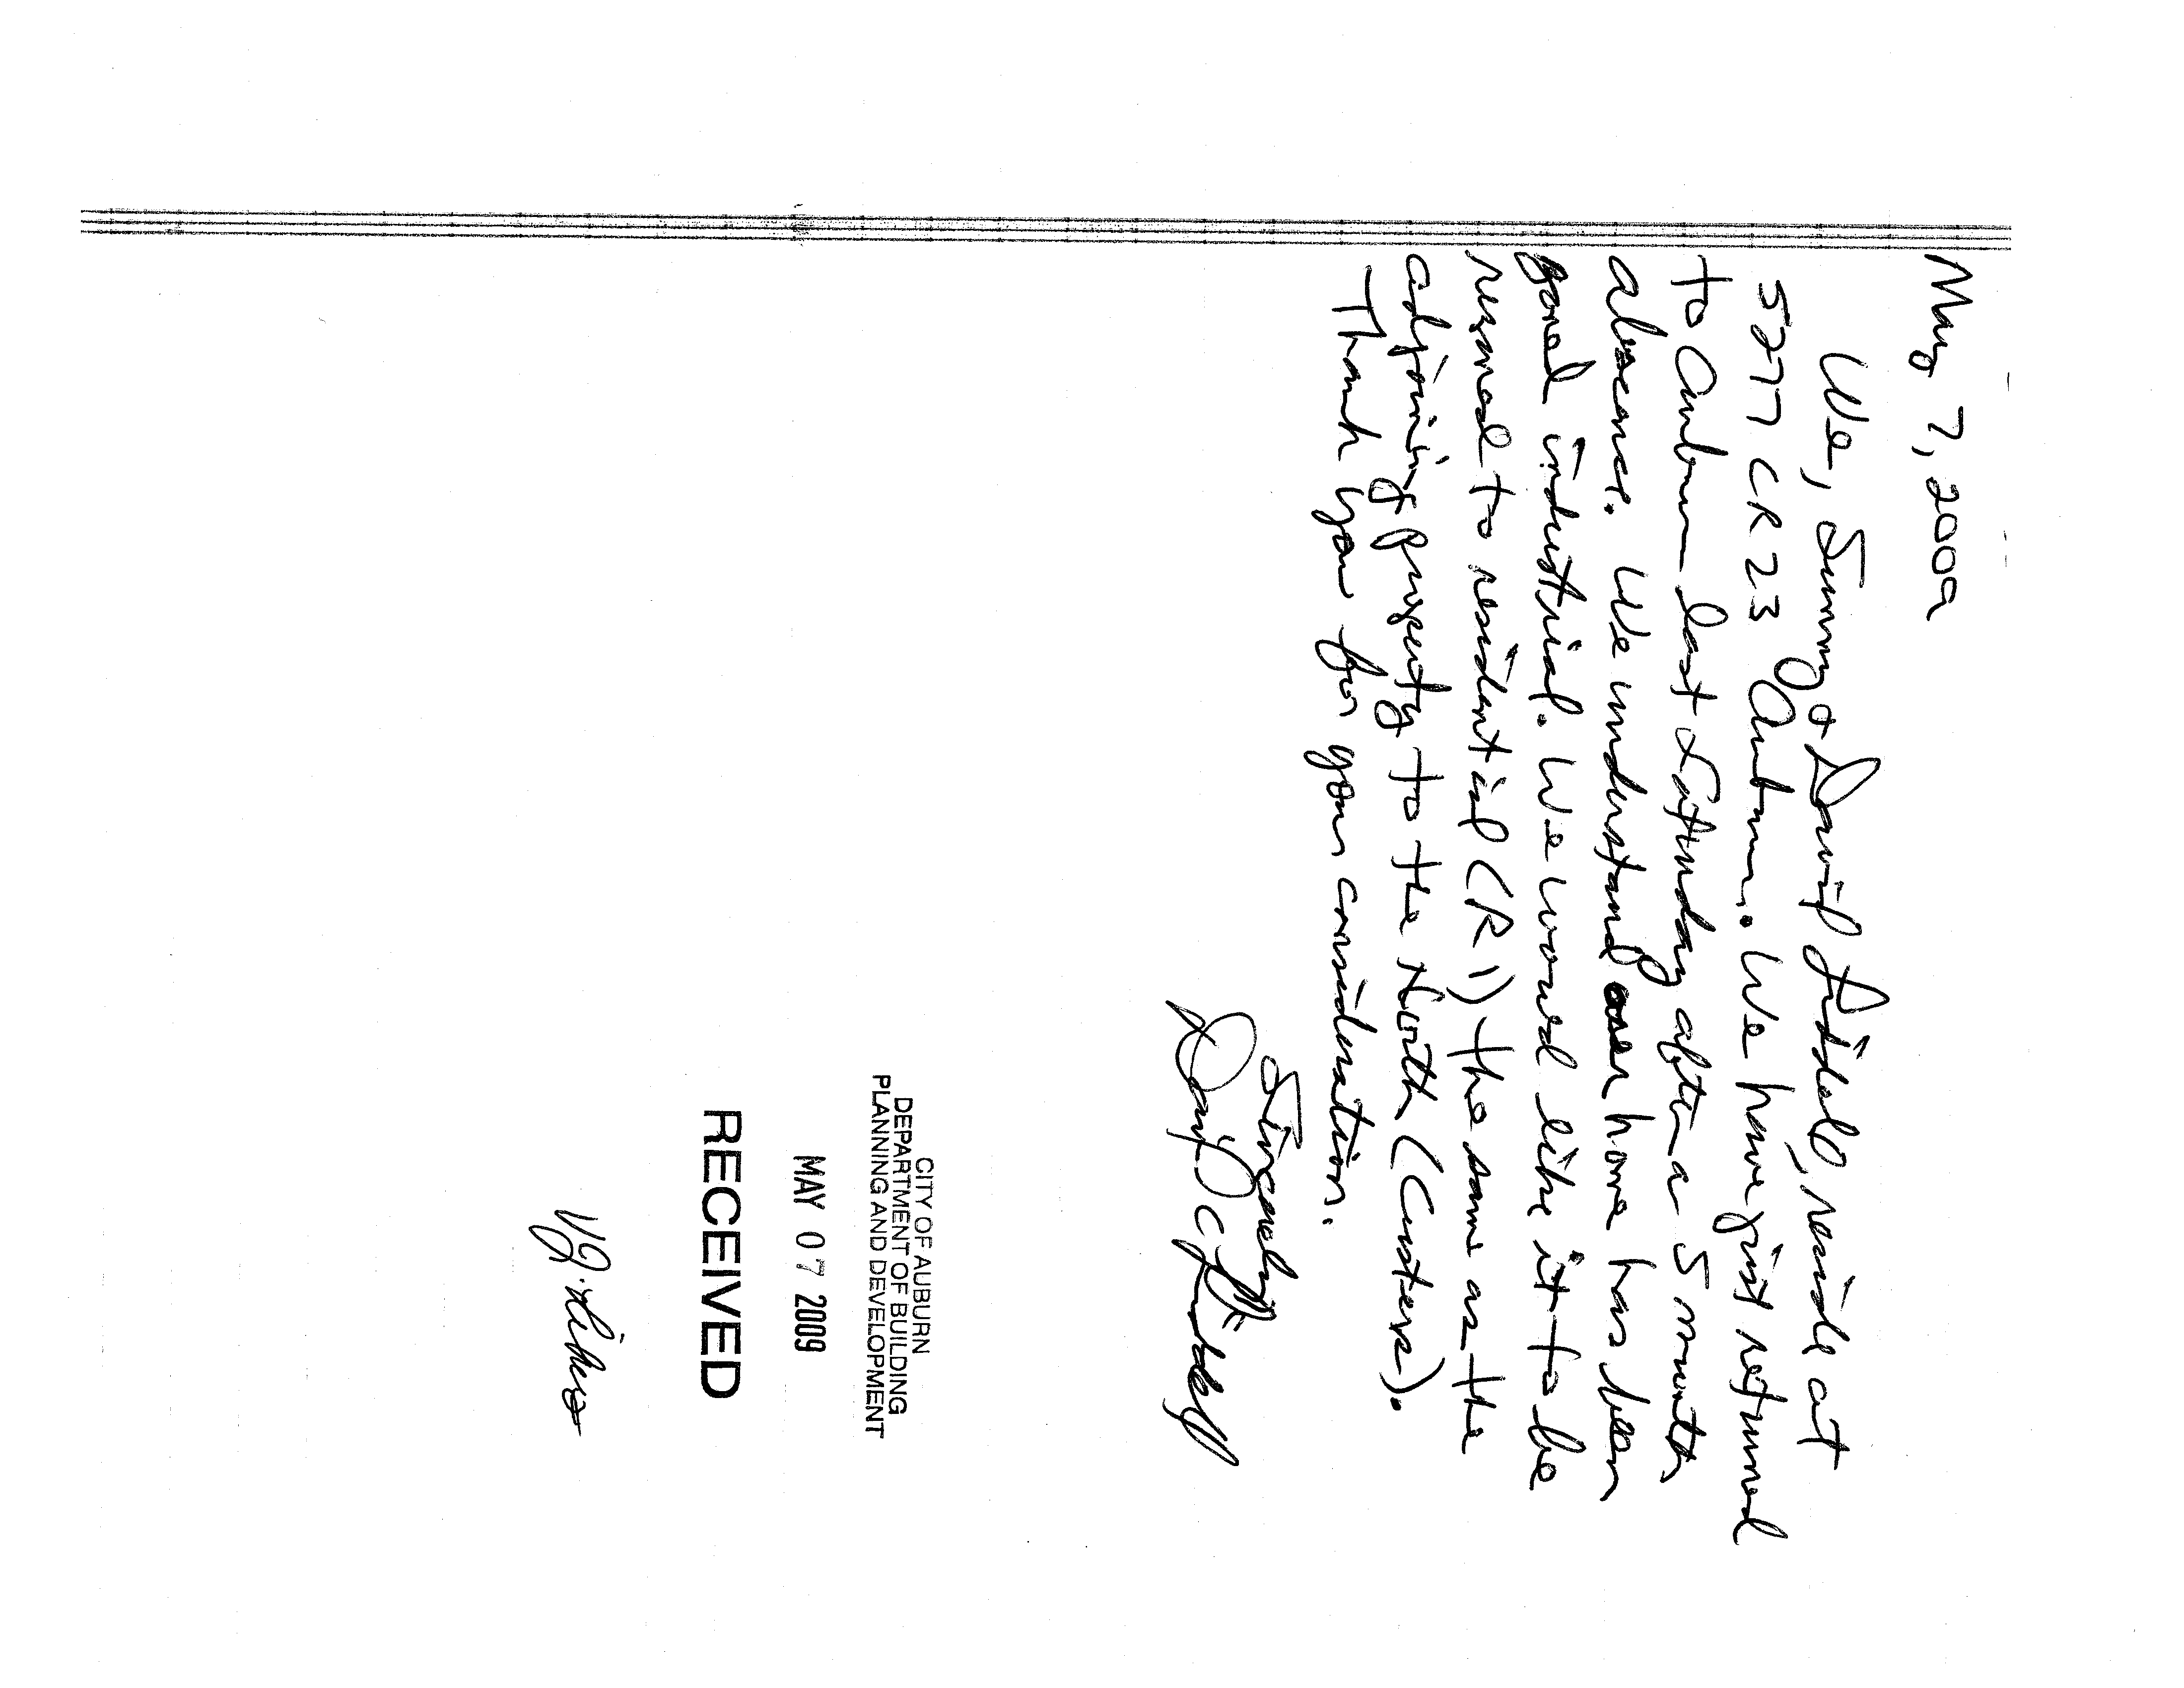 May 7, 2009
We, Sunny & David Fidell, reside at
5277 CR 23 Auburn. We have just returned
to Auburn last Saturday after a 5 month
absence. We understand our home has been
zoned industrial. We would like it to be
rezoned to residential (R1) the same as the
adjoining property to the North (Custers).
Thank you for your consideration.
Sincerely,
David C. Fidell
CITY OF AUBURN
DEPARTMENT OF BUILDING
PLANNING AND DEVELOPMENT
MAY 07 2009
RECEIVED